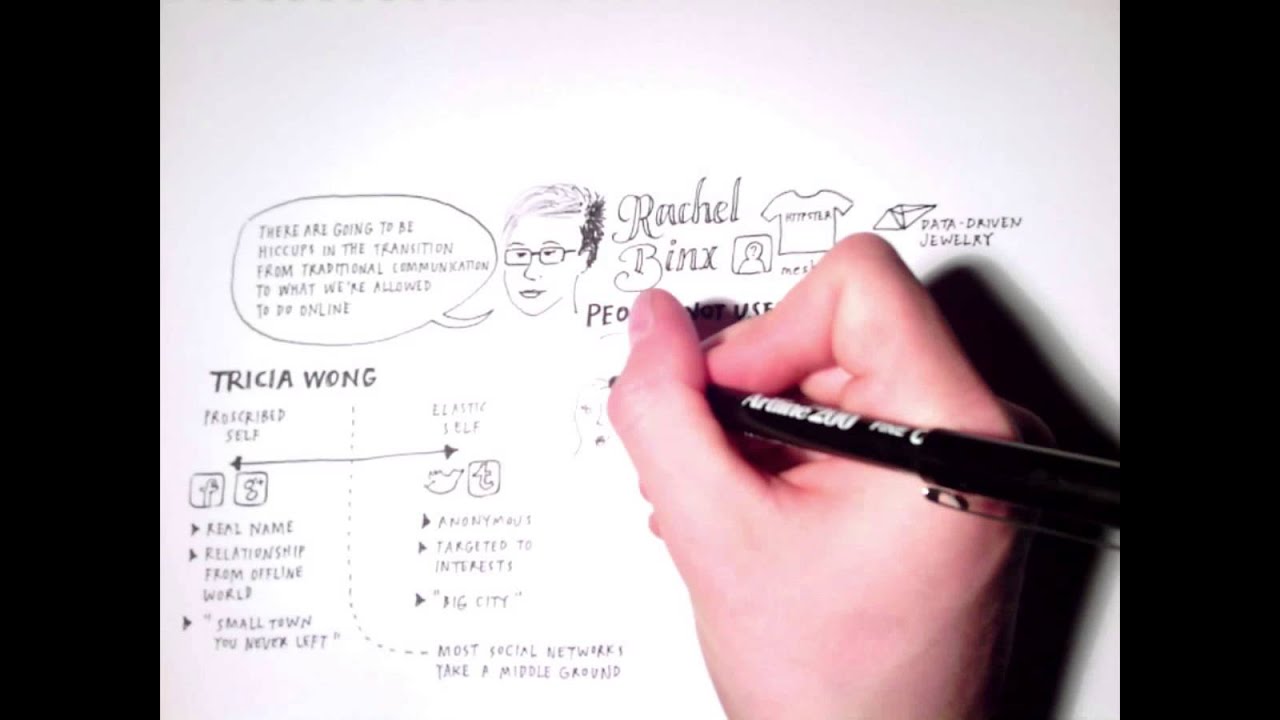 THERE ARE GOING TO BE
HICCUPS IN THE TRANSITION
FROM TRADITIONAL COMMUNICATION
TO WHAT WE'RE ALLOWED
TO DO ONLINE
Rachel
Binx
HTTPSTER
DATA-DRIVEN
JEWELRY
NOT
TRICIA WONG
PROSCRIBED
SELF
ELASTIC
SELF
f
g+
t
REAL NAME
RELATIONSHIP
FROM OFFLINE
WORLD
"SMALL TOWN
YOU NEVER LEFT"
ANONYMOUS
TARGETED TO
INTERESTS
"BIG CITY"
MOST SOCIAL NETWORKS
TAKE A MIDDLE GROUND
Artline 200 FINE